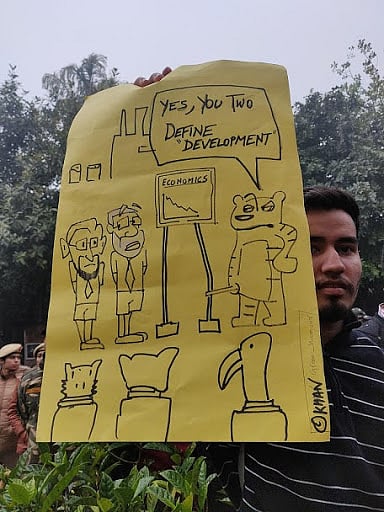 YES, YOU TWO
DEFINE
"DEVELOPMENT"
ECONOMICS
©KHAN